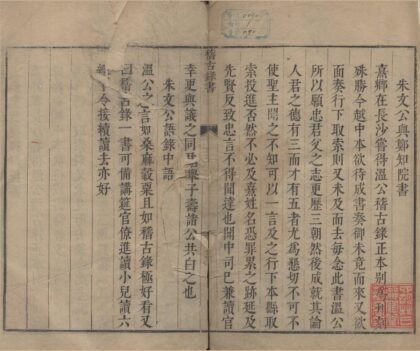 朱文公與鄭知院書
熹鄉在長沙嘗得溫公稽古錄正本別爲刊
殊勝今越中本欲待成書奏御未竟而來又欲
面奏行下取索則又未及面去每念此書溫公
所以願忠君父之志更歷三朝然後成就其論
人君之德有三而才有五者尤爲懇切不可不
使聖主聞之不知可以一言及之行下本縣取
索投進否然不必及熹姓名恐罪累之跡延及
先賢反致忠言不得聞達也聞中司已兼讀官
稽古錄書
幸更與議之同 子壽諸公共白之也
朱文公語錄中語
溫公之言如桑麻穀粟且如稽古錄極好看又
曰稽古錄一書可備講筵官僚進讀小兒讀六
令接續讀去亦好